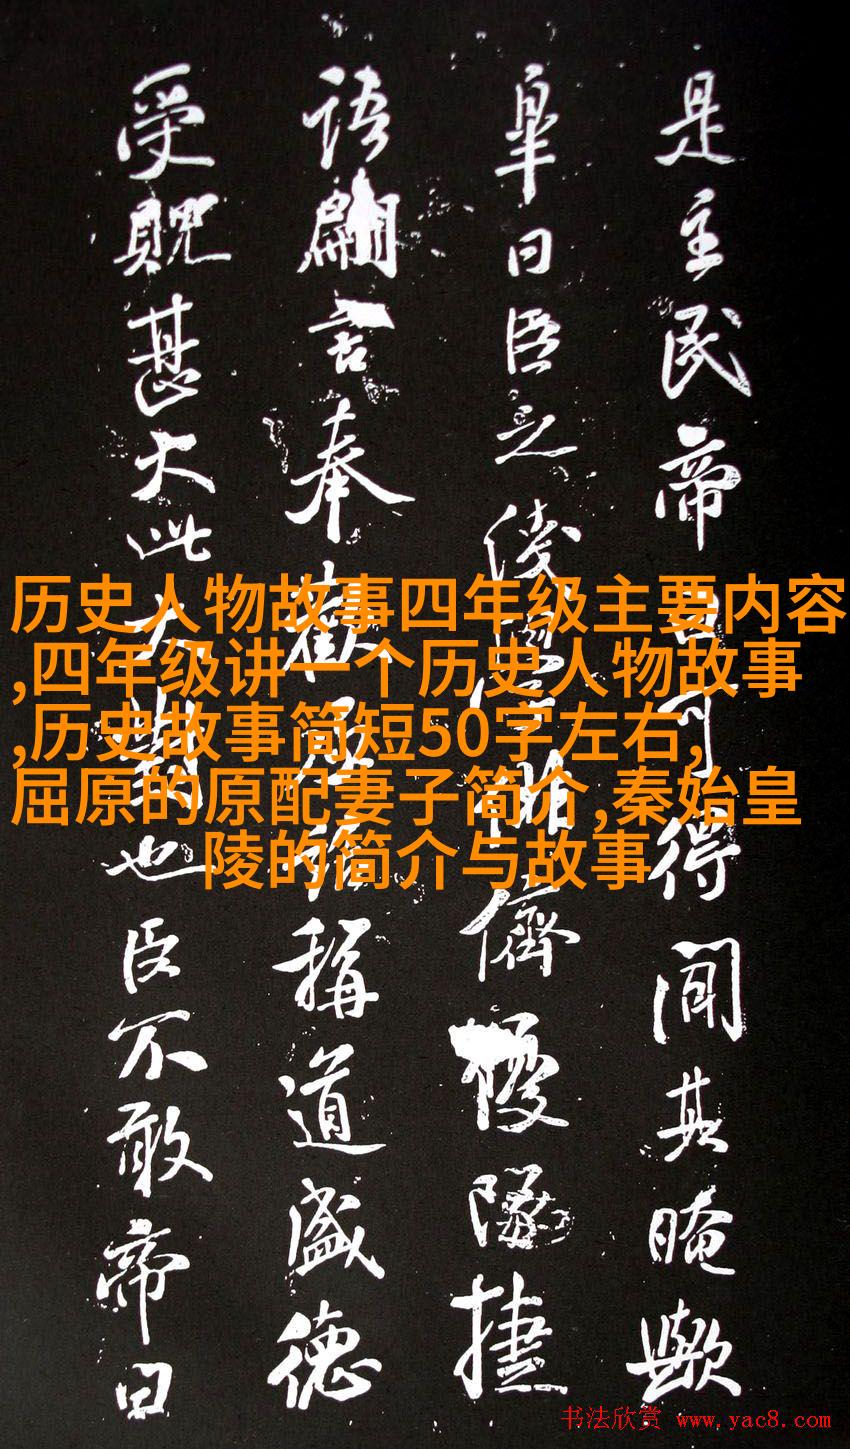 是主民帝曰可得聞其晻歟
皋曰臣之儕擾隊捷
語翩言奉勸稱道盛德
受貺甚大此大也臣不敢帝曰
历史人物故事四年级主要内容
,四年级讲一个历史人物故事
,历史故事简短50字左右,
屈原的原配妻子简介,秦始皇
陵的简介与故事
书法欣赏 www.yac8.com